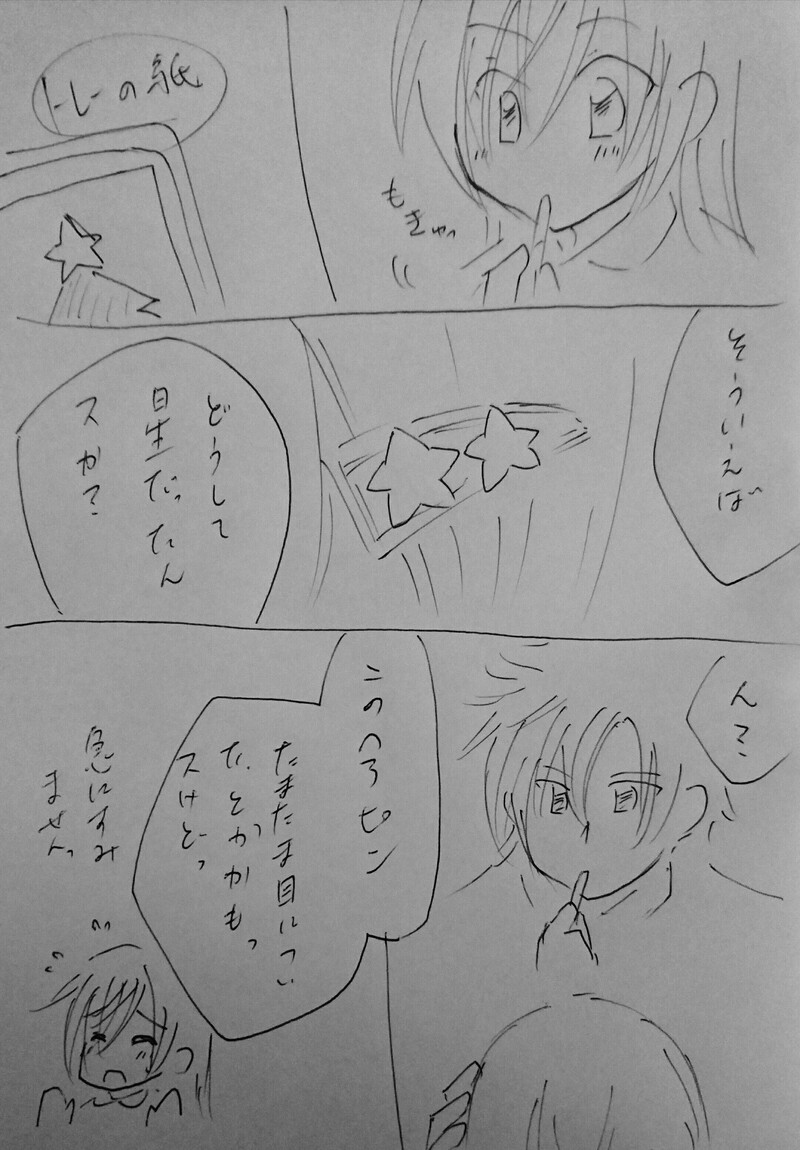 もきゅっ
トレーの紙
そういえば
どうして
星だったん
スか？
ん？
このヘアピン
たまたま目につい
た、とかかもっ
スけどっ
急にすみ
ませんっ